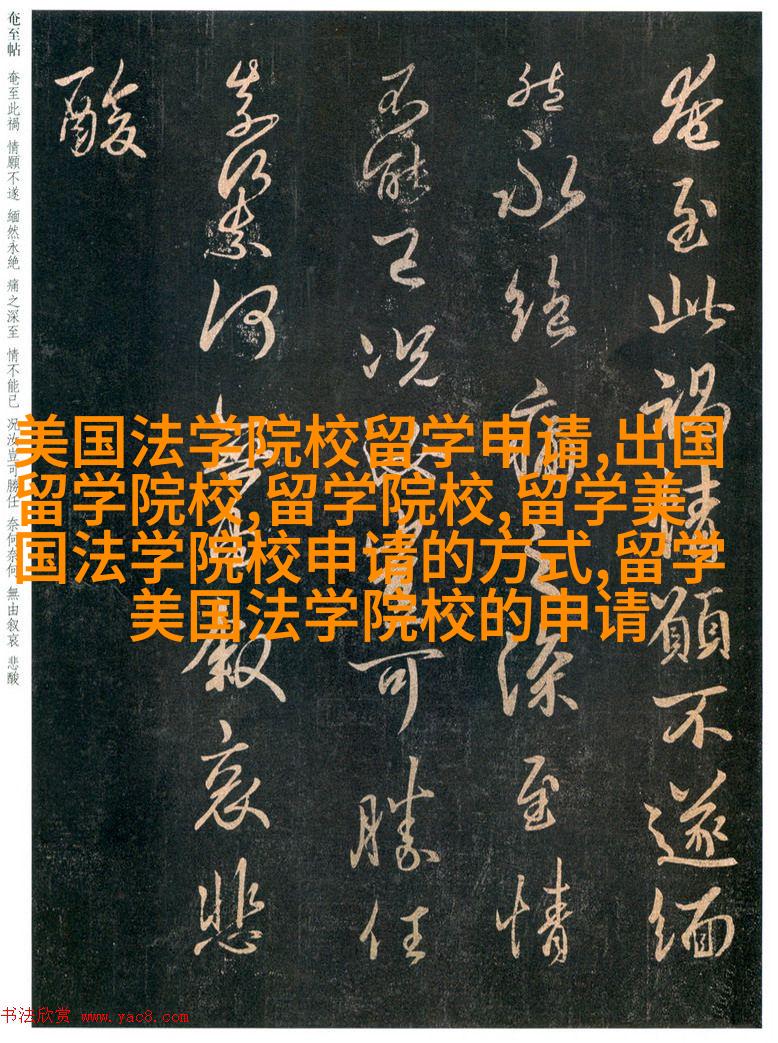 奄至帖 奄至此禍 情願不遂 緬然永絶 痛之深至 情不能已 况汝豈可勝任 奈何奈何 無由叙哀 悲酸
奄至此禍情願不遂緬
然永絶痛之深至情
不能已况汝豈可勝任
奈何奈何無由叙哀悲
酸
美国法学院校留学申请,出国
留学院校,留学院校,留学美
国法学院校申请的方式,留学
美国法学院校的申请
书法欣赏 www.yac8.com